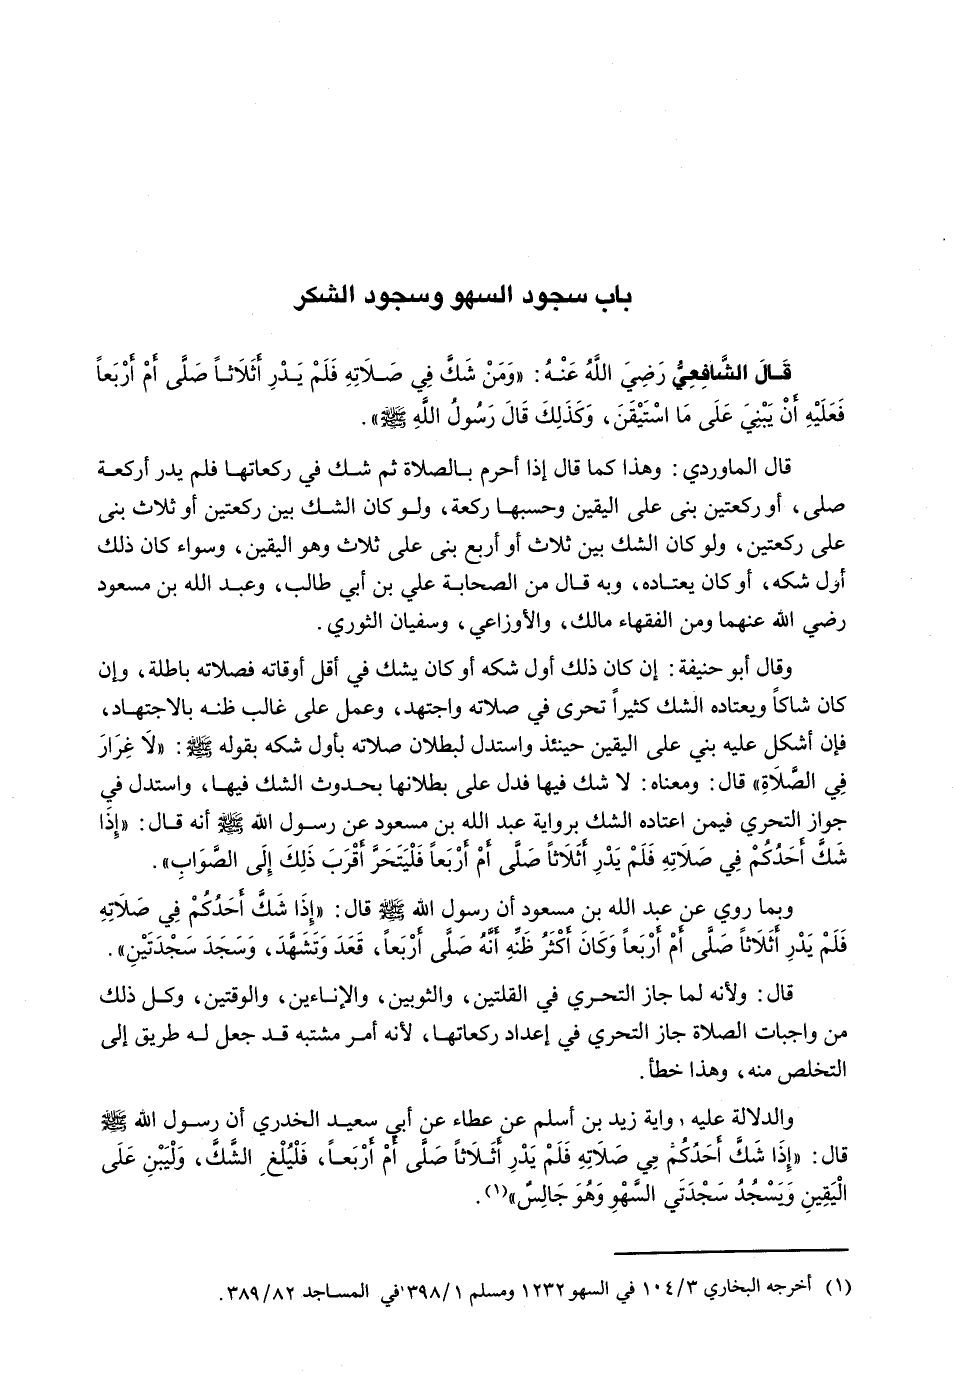 باب سجود السهو وسجود الشكر
قَالَ الشَّافِعِيُّ رَضِيَ اللَّهُ عَنْهُ: «وَمَنْ شَكَّ فِي صَلَاتِهِ فَلَمْ يَدْرِ أَثَلَاثاً صَلَّى أَمْ أَرْبَعاً
فَعَلَيْهِ أَنْ يَبْنِيَ عَلَى مَا اسْتَيْقَنَ، وَكَذَلِكَ قَالَ رَسُولُ اللَّهِ ﷺ».
قال الماوردي: وهذا كما قال إذا أحرم بالصلاة ثم شك في ركعاتها فلم يدر أركعة
صلى، أو ركعتين بنى على اليقين وحسبها ركعة، ولو كان الشك بين ركعتين أو ثلاث بنى
على ركعتين، ولو كان الشك بين ثلاث أو أربع بنى على ثلاث وهو اليقين، وسواء كان ذلك
أول شكه، أو كان يعتاده، وبه قال من الصحابة علي بن أبي طالب، وعبد الله بن مسعود
رضي الله عنهما ومن الفقهاء مالك، والأوزاعي، وسفيان الثوري.
وقال أبو حنيفة: إن كان ذلك أول شكه أو كان يشك في أقل أوقاته فصلاته باطلة، وإن
كان شاكاً ويعتاده الشك كثيراً تحرى في صلاته واجتهد، وعمل على غالب ظنه بالاجتهاد،
فإن أشكل عليه بني على اليقين حينئذ واستدل لبطلان صلاته بأول شكه بقوله ﷺ: «لَا غِرَارَ
فِي الصَّلَاةِ» قال: ومعناه: لا شك فيها فدل على بطلانها بحدوث الشك فيها، واستدل في
جواز التحري فيمن اعتاده الشك برواية عبد الله بن مسعود عن رسول الله ﷺ أنه قال: «إِذَا
شَكَّ أَحَدُكُمْ فِي صَلَاتِهِ فَلَمْ يَدْرِ أَثَلَاثاً صَلَّى أَمْ أَرْبَعاً فَلْيَتَحَرَّ أَقْرَبَ ذَلِكَ إِلَى الصَّوَابِ».
وبما روي عن عبد الله بن مسعود أن رسول الله ﷺ قال: «إِذَا شَكَّ أَحَدُكُمْ فِي صَلَاتِهِ
فَلَمْ يَدْرِ أَثَلَاثاً صَلَّى أَمْ أَرْبَعاً وَكَانَ أَكْثَرُ ظَنِّهِ أَنَّهُ صَلَّى أَرْبَعاً، قَعَدَ وَتَشَهَّدَ، وَسَجَدَ سَجْدَتَيْنِ».
قال: ولأنه لما جاز التحري في القلتين، والثوبين، والإناءين، والوقتين، وكل ذلك
من واجبات الصلاة جاز التحري في إعداد ركعاتها، لأنه أمر مشتبه قد جعل له طريق إلى
التخلص منه، وهذا خطأ.
والدلالة عليه رواية زيد بن أسلم عن عطاء عن أبي سعيد الخدري أن رسول الله ﷺ
قال: «إِذَا شَكَّ أَحَدُكُمْ فِي صَلَاتِهِ فَلَمْ يَدْرِ أَثَلَاثاً صَلَّى أَمْ أَرْبَعاً، فَلْيُلْغِ الشَّكَّ، وَلْيَبْنِ عَلَى
الْيَقِينِ وَيَسْجُدُ سَجْدَتَي السَّهْوِ وَهُوَ جَالِسٌ»(١).
(١) أخرجه البخاري ٣/١٠٤ في السهو ١٢٣٢ ومسلم ١/٣٩٨ في المساجد ٨٢/٣٨٩.